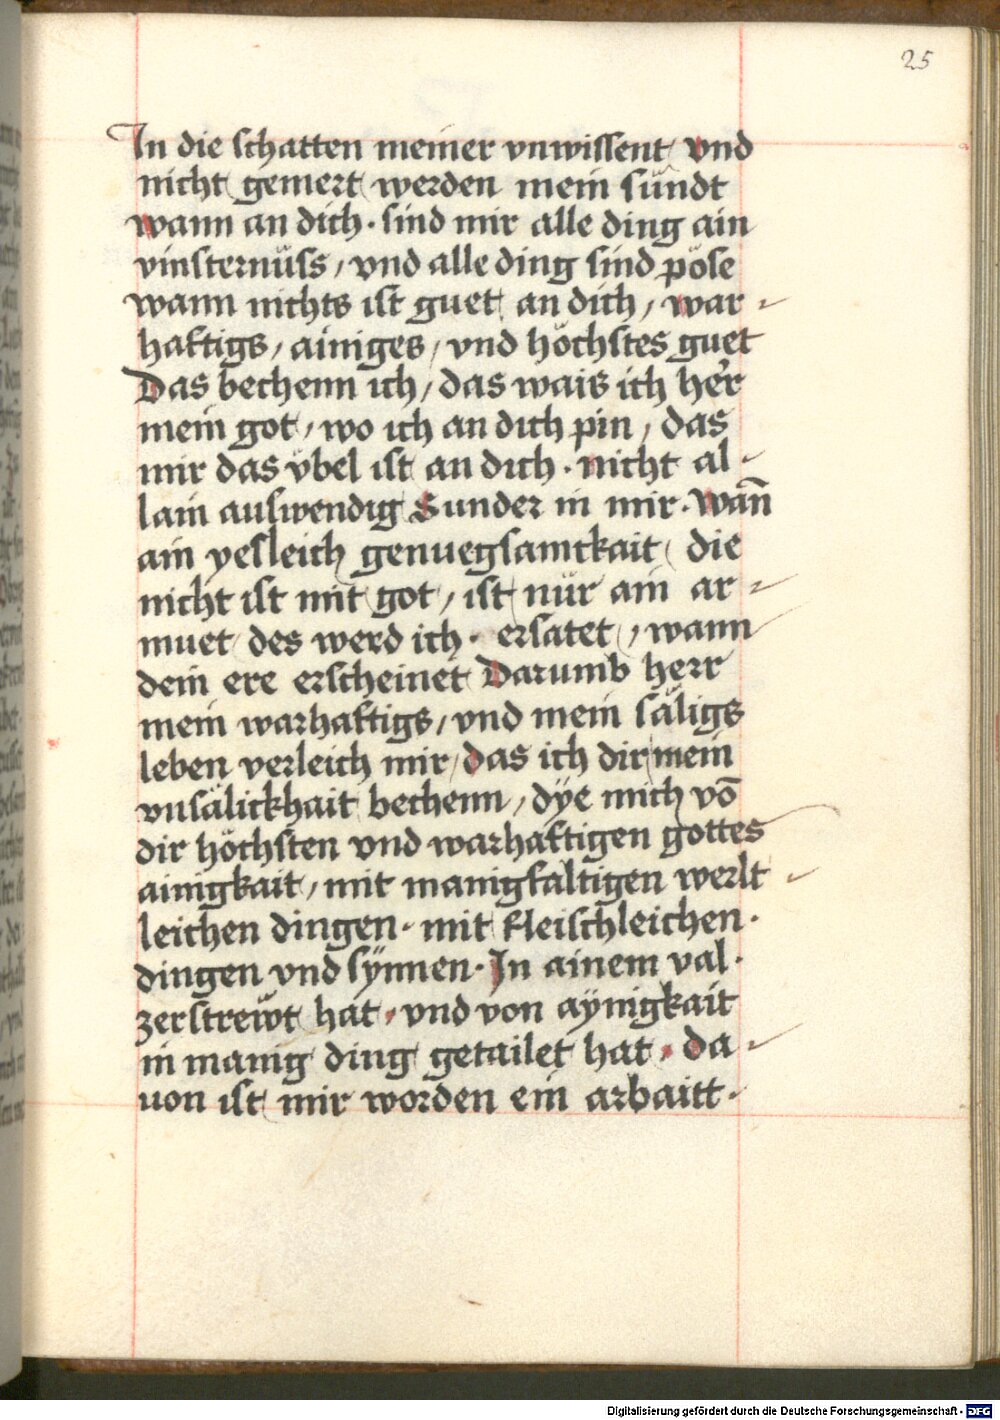 25
In die schatten meiner vnwissent vnd
nicht gemert werden mein sündt
wann an dich · sind mir alle ding ain
vinsternüss / vnd alle ding sind pöse
wann nichts ist guet an dich / war-
haftigs / ainiges / vnd höchstes guet
Das bechenn ich / das wais ich her
mein got / wo ich an dich pin / das
mir das vbel ist an dich · nicht al-
lain auswendig Sunder in mir · Wan̄
ain yesleich genuegsamckait die
nicht ist mit got / ist nür ain ar-
muet des werd ich · ersatet / wann
dein ere erscheinet Darumb herr
mein warhaftigs / vnd mein säligs
leben verleich mir / das ich dir mein
vnsälickhait bechenn / dÿe mich vō
dir höchsten vnd warhaftigen gottes
ainigkait / mit manigfaltigen werlt-
leichen dingen · mit fleischleichen ·
dingen vnd sÿnnen · In ainem val ·
zerstrewt hat / vnd von aÿnigkait
in manig ding getailet hat / da-
uon ist mir worden ein arbaitt ·
Digitalisierung gefördert durch die Deutsche Forschungsgemeinschaft - DFG